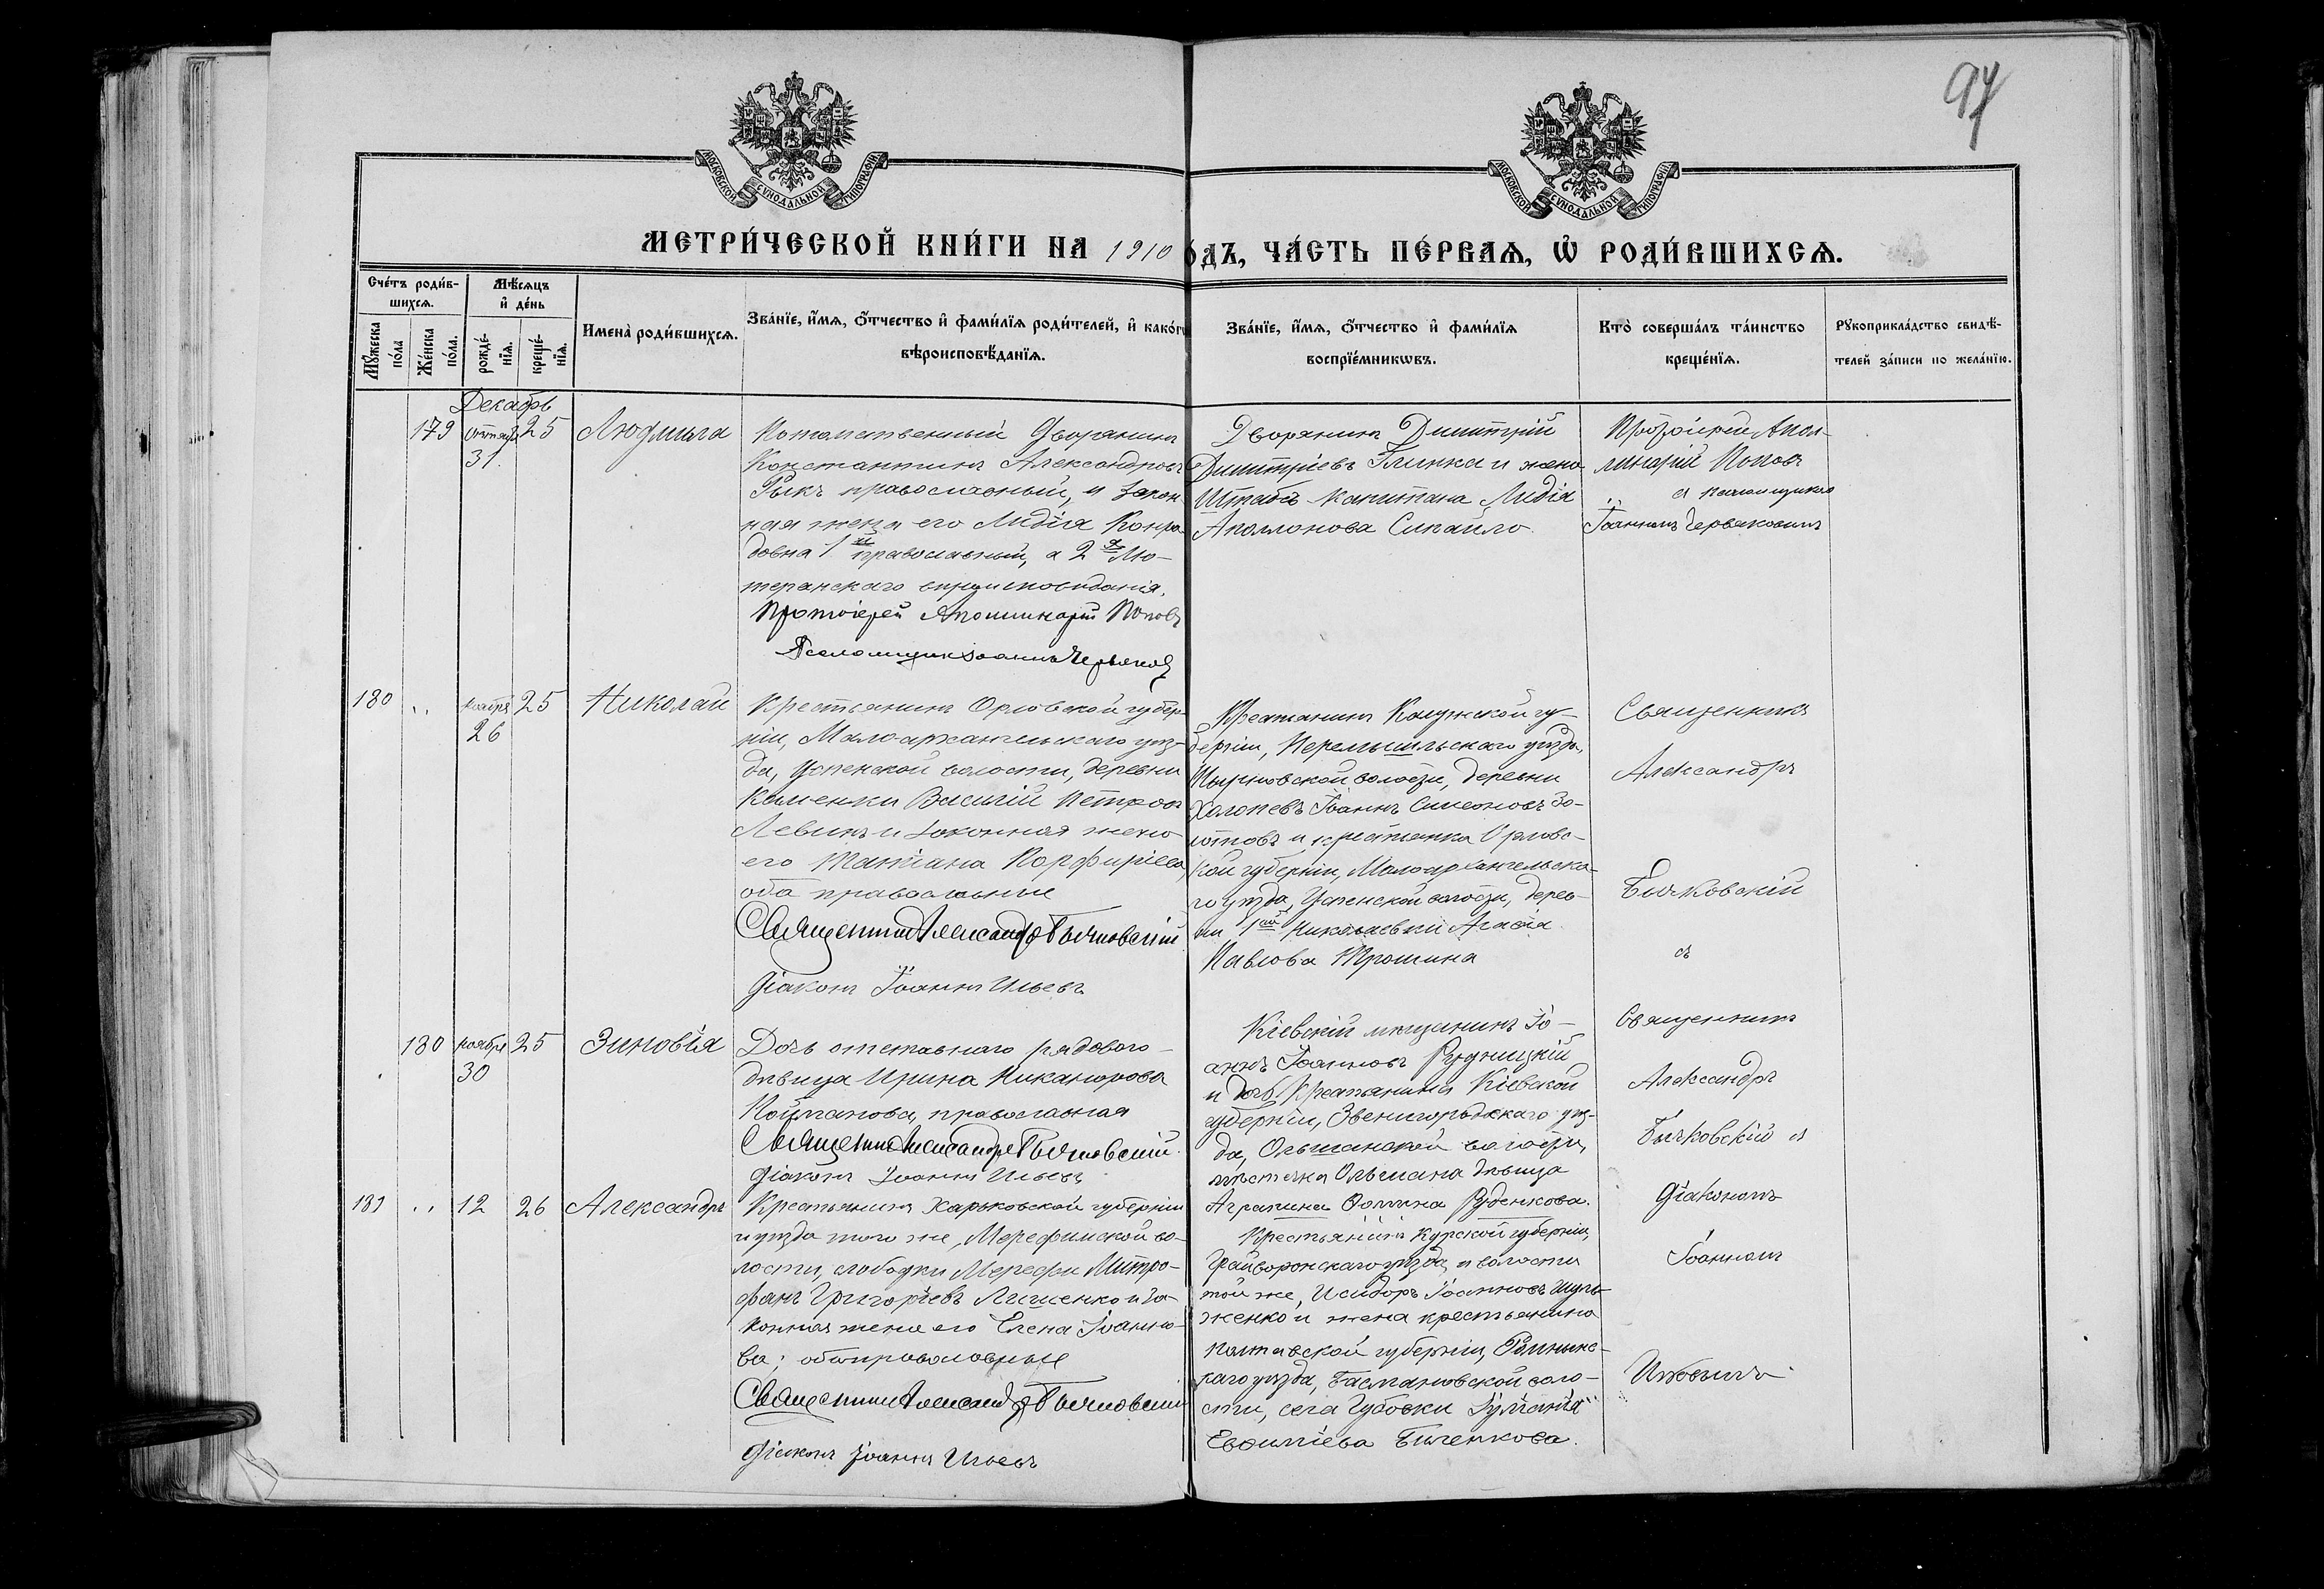 97
МОСКОВСКОЙ СѴНОДАЛЬНОЙ ТИПОГРАФІИ
МОСКОВСКОЙ СѴНОДАЛЬНОЙ ТИПОГРАФІИ
МЕТРИ́ЧЕСКОЙ КНИ́ГИ НА 1910 О́ДЪ, ЧА́СТЬ ПЕ́РВАѦ, Ѡ҆ РОДИ́ВШИХСѦ.
Сче́тъ роди́в-
шихсѧ.
Мꙋ́жеска
по́ла
Же́нска
по́ла.
Мѣ́сѧцъ
и҆ де́нь
рожде́-
нїѧ.
креще́-
нїѧ.
Имена̀ роди́вшихсѧ.
Зва́нїе, и҆́мѧ, ѻ҆́тчество и҆ фами́лїѧ роди́телей, и҆ како́гѡ
вѣроисповѣ́данїѧ.
Зва́нїе, и҆́мѧ, ѻ҆́тчество и҆ фами́лїѧ
воспрїе́мникѡвъ.
Кто̀ соверша́лъ та́инство
креще́нїѧ.
Рꙋкоприкла́дство свидѣ́-
телей за́писи по жела́нїю.
Декабрь
179 31. 25 Людмила
Потомственный Дворянинъ
Константинъ Александровъ
Рыкъ православный, и закон-
ная жена его Лидія Конра-
довна 1й православный, а 2я Лю-
теранскаго вѣроисповѣданія.
Протоіерей Аполлинарій Поповъ
Псаломщикъ Іоаннъ Червяковъ
Дворянинъ Димитрій
Димитріевъ Глинка и жена
Штабсъ Капитана Лидія
Аполлонова Сипайло
Протоіерей Апол-
линарій Поповъ
съ псаломщикомъ
Іоанномъ Червяковымъ
180 " ноября 26 25 Николай
Крестьянинъ Орловской губер-
ніи, Мало-архангельскаго уѣз-
да, Успенской волости, деревни
Каменки Василій Петровъ
Левинъ и законная жена
его Татіана Порфиріева,
оба православные
Священникъ Александръ Бычковскій
Діаконъ Іоаннъ Ильевъ
Крестьянинъ Калужской гу-
берніи, Перемышльскаго уѣзда,
волости, деревни
Іоаннъ Симеоновъ Зо-
лотовъ и крестьянка Орловс-
кой губерніи, Малоархангельска-
го уѣзда, Успенской волости, дерев-
ни 1ой Николаевки Агафія
Павлова Трошина
Священникъ
Александръ
Бычковскій
съ
180 ноября 30 25 Зиновія
Дочь отставнаго рядового
дѣвица Ирина Никанорова
православная
Священникъ Александръ Бычковскій.
Діаконъ Іоаннъ Ильевъ
Кіевскій мѣщанинъ Іо-
аннъ Іоанновъ Рудницкій
и дочь Крестьянина Кіевской
губерніи, Звенигородскаго уѣз-
да, Ольшанской волости,
мѣстечка Ольшана дѣвица
Агрипина Ѳомина Руденкова.
Священникъ
Александръ
Бычковскій съ
181 " 12 26 Александръ
Крестьянинъ Харьковской губерніи
и уѣзда того же, Мерефинской во-
лости, слободки Мерефи Митро-
фанъ Григоріевъ Лишенко и за-
конная жена его Елена Іоанно-
ва; оба православные
Священникъ Александръ Бычковскій
Діаконъ Іоаннъ Ильевъ
Крестьянинъ Курской губерніи,
Грайворонскаго уѣзда, и волости
той же, Исидоръ Іоанновъ Шуль-
женко и жена крестьянина
Полтавской губерніи, Роменс-
каго уѣзда, Басмановской воло-
сти, села Губовки Іуліанія
Евѳиміева Биленкова.
Діакономъ
Іоанномъ
Ильевымъ